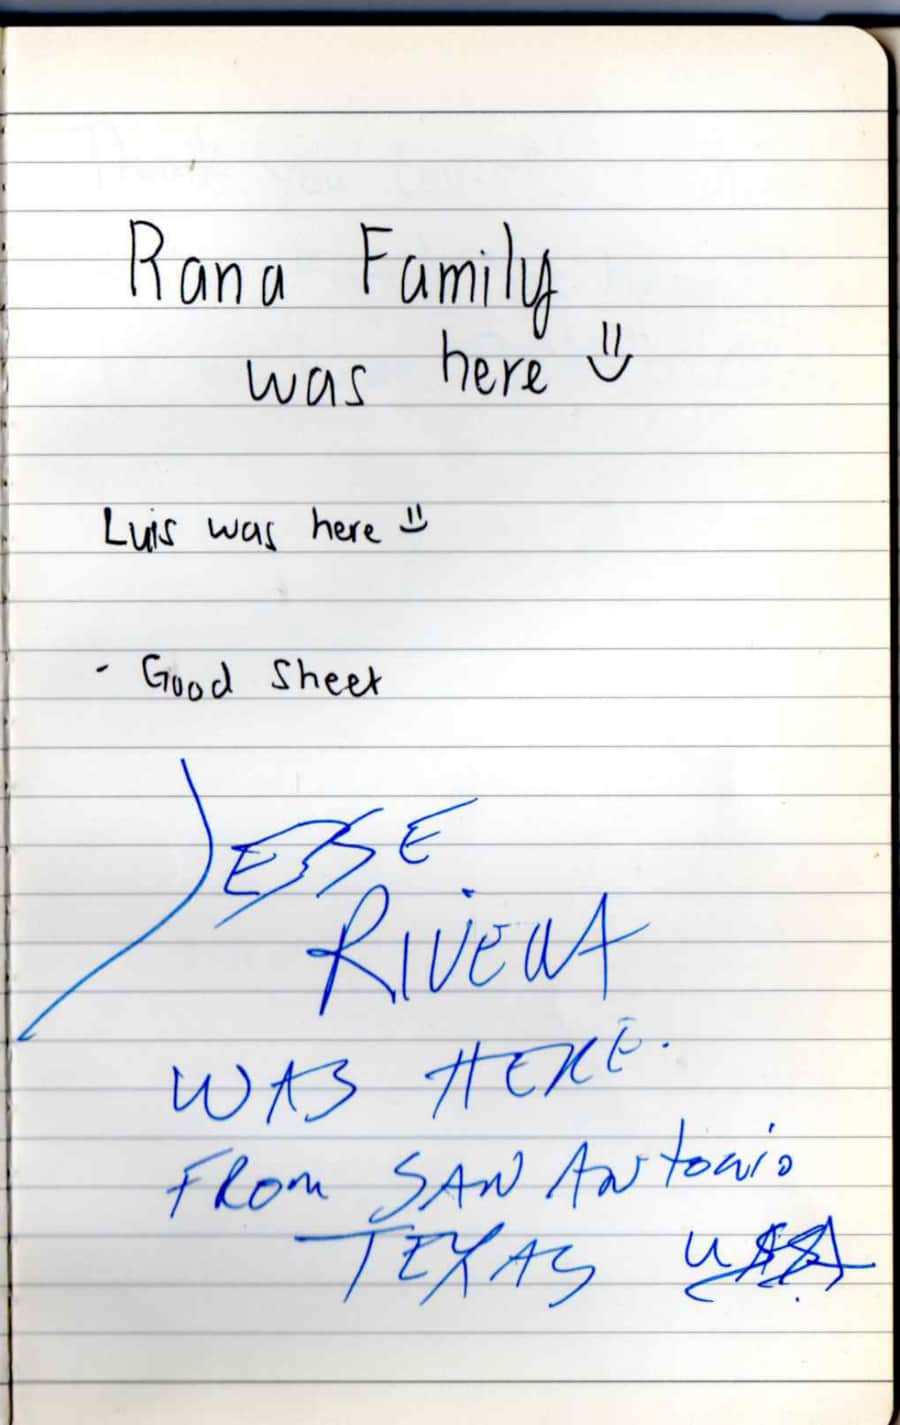 Rana Family
was here
Luis was here
- Good Sheet
JESSE
RIVERA
WAS HERE.
FROM SAN ANtonio
TEXAS USA